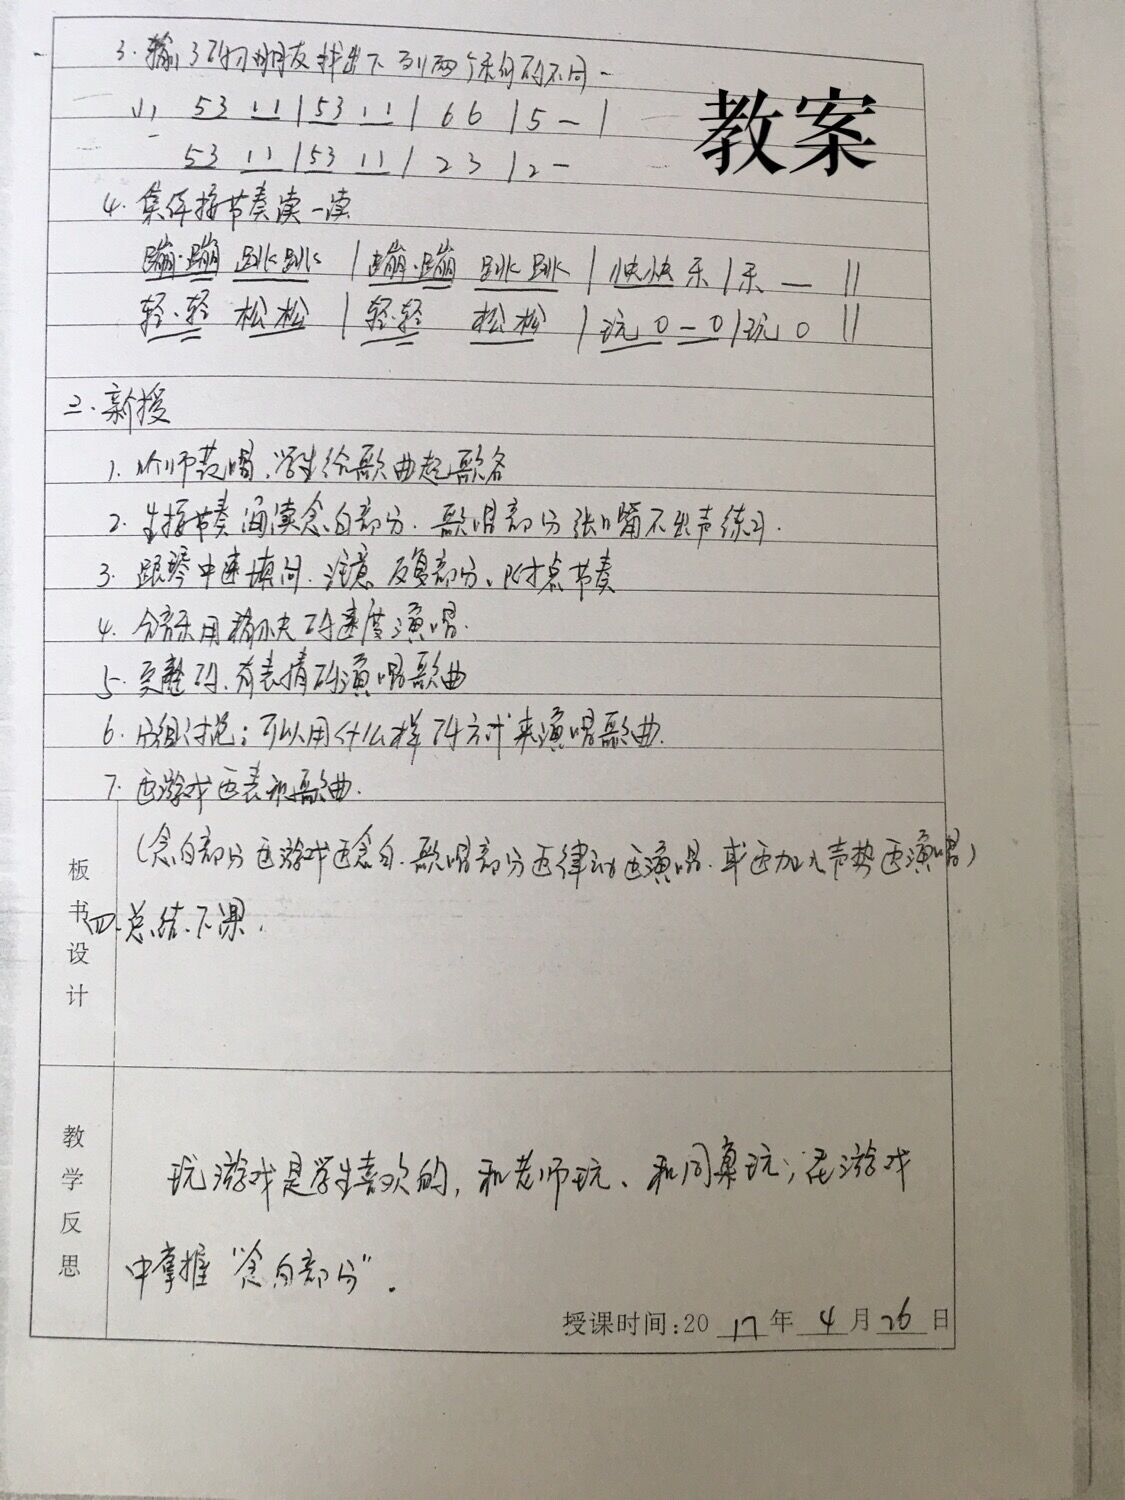 3. 输了的小朋友找出下列两个乐句的不同-
教案
(1) 53 11 | 53 11 | 6 6 | 5 - |
53 11 | 53 11 | 2 3 | 2 -
4. 集体按节奏读一读
蹦·蹦 跳跳 | 蹦·蹦 跳跳 | 快快乐 | 乐 — ||
轻·轻 松松 | 轻·轻 松松 | 玩 0 - 0 | 玩 0 ||
三、新授
1. 师范唱,学生给歌曲起歌名
2. 生按节奏诵读念白部分. 歌唱部分张嘴不出声练习.
3. 跟琴中速填词. 注意反复部分、附点节奏
4. 用稍快的速度演唱.
5. 完整的、有表情的演唱歌曲
6. 分组讨论:可以用什么样的方式来演唱歌曲.
7. 边游戏边表现歌曲.
(念白部分边游戏边念白. 歌唱部分边律动边演唱. 或边加入声势边演唱)
四、总结、下课.
板书设计
教学反思
玩游戏是学生喜欢的,和老师玩、和同桌玩;在游戏
中掌握“念白部分”.
授课时间:20 17 年 4 月 26 日